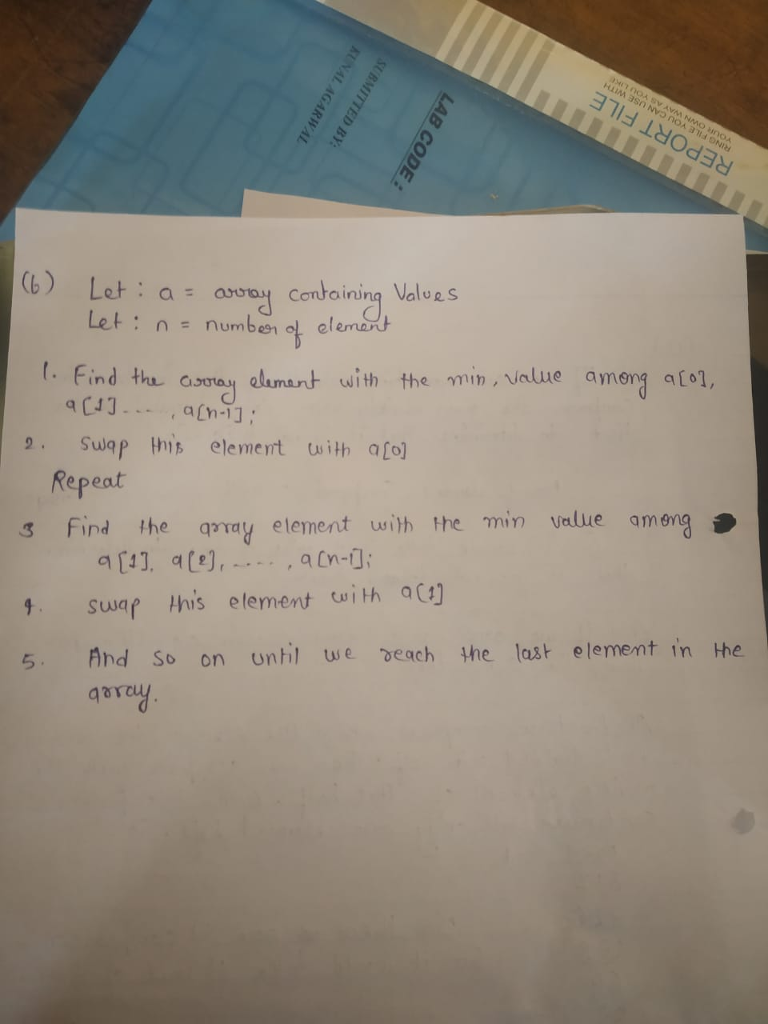 REPORT FILE
RING FILE YOU CAN USE WITH
YOUR OWN WAY AS YOU LIKE
LAB CODE :
SUBMITTED BY:
KUNAL AGARWAL
(b) Let : a = array containing Values
Let : n = number of element
1. Find the array element with the min, value among a[0],
a[1] ...., a[n-1];
2. Swap this element with a[0]
Repeat
3 Find the array element with the min value among
a[1], a[2], ....., a[n-1];
4. swap this element with a[1]
5. And so on until we reach the last element in the
array.